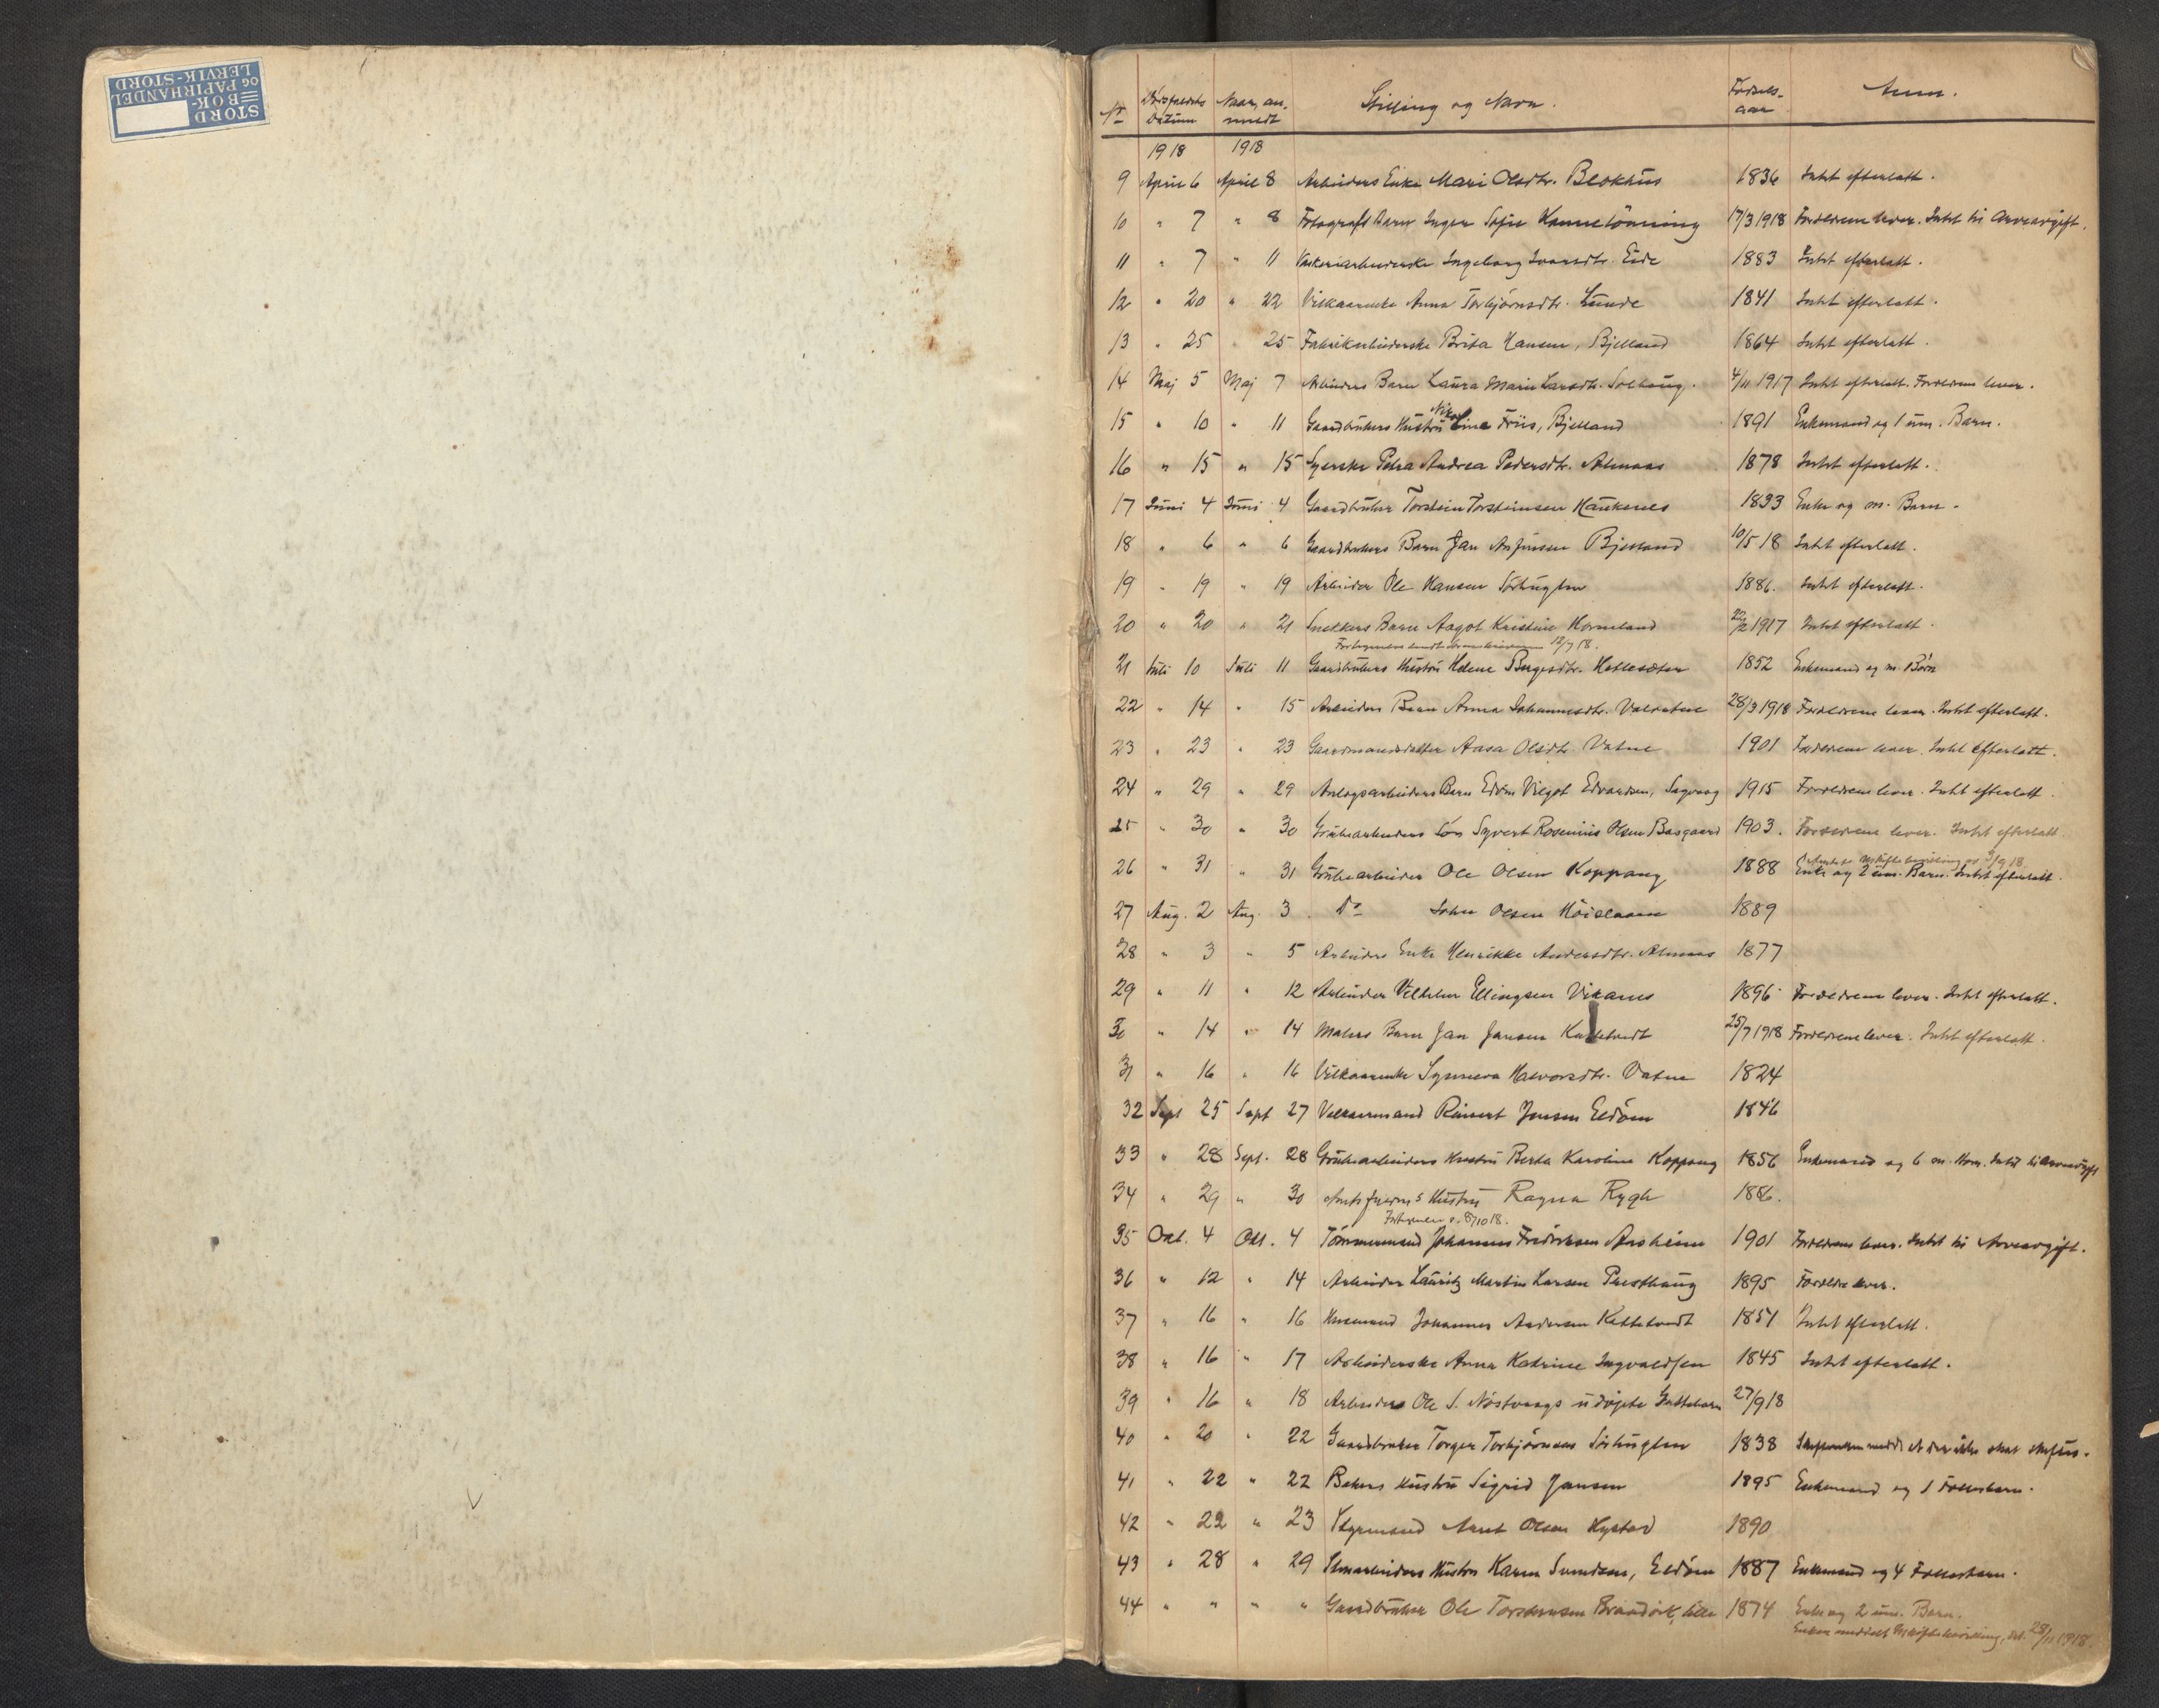 STORD
BOK-
OG PAPIRHANDEL
LERVIK-STORD
Nr Dödsfaldets Datum Naar anmeldt Stilling og Navn. Fødselsaar Anm.
1918 1918
9 April 6 April 8 Arbeiders Enke Mari Olsdtr. Blokhus 1836 Intet efterlatt.
10 " 7 " 8 Fotografs Barn Inger Sofie Kannelönning 17/3 1918 Forældrene lever. Intet til Arveavgift.
11 " 7 " 11 Ingeborg Ivarsdtr. Eide 1883 Intet efterlatt.
12 " 20 " 22 Vilkaarsenke Anna Torbjörnsdtr. Lunde 1841 Intet efterlatt.
13 " 25 " 25 Fabrikarbeiderske Brita Hansen, Bjelland 1864 Intet efterlatt.
14 Maj 5 Maj 7 Arbeiders Barn Laura Marie Larsdtr. Solhaug. 4/11 1917 Intet efterlatt. Forældrene lever.
15 " 10 " 11 Gaardbrukers Hustru Nikoline Friis, Bjelland 1891 Enkemand og 1 um. Barn.
16 " 15 " 15 Syerske Petra Andrea Pedersdtr. Almaas 1878 Intet efterlatt.
17 Juni 4 Juni 4 Gaardbruker Torstein Torsteinsen Haukenes 1833 Enke og m. Barn.
18 " 6 " 6 Gaardbrukers Barn Jan Anfinsen Bjelland 10/5 18 Intet efterlatt.
19 " 19 " 19 Arbeider Ole Hansen Sörhuglen 1886. Intet efterlatt.
20 " 20 " 21 Snekkers Barn Aagot Kristine Horneland 22/2 1917 Intet efterlatt.
12/7 18.
21 Juli 10 Juli 11 Gaardbrukers Hustru Helene Børgesdtr. Hetlesæter 1852 Enkemand og m. Börn
22 " 14 " 15 Arbeiders Barn Anna Johannesdtr. Valvatne 28/3 1918 Forældrene lever. Intet efterlatt.
23 " 23 " 23 Gaardmandsdatter Aasa Olsdtr. Vatne 1901 Forældrene lever. Intet efterlatt.
24 " 29 " 29 Anlægsarbeiders Barn Edvin Vilgot Edvardsen, Sagvaag 1915 Forældrene lever. Intet efterlatt.
25 " 30 " 30 Grubearbeiders Sön Syvert Rosenius Olsen Basgaard 1903. Forældrene lever. Intet efterlatt.
26 " 31 " 31 Grubearbeider Ole Olsen Koppang 1888 Enke og 2 um. Barn. Intet efterlatt.
27 Aug. 2 Aug. 3 Do John Olsen Höielaasen 1889
28 " 3 " 5 Arbeiders Enke Henrikke Andersdtr. Almaas 1877
29 " 11 " 12 Arbeider Vilhelm Ellingsen Vikanes 1896 Forældrene lever. Intet efterlatt.
30 " 14 " 14 Malers Barn Jan Jansen Kattetvedt 25/7 1918 Forældrene lever. Intet efterlatt.
31 " 16 " 16 Vilkaarsenke Synneva Halvorsdtr. Vatne 1824
32 Sept 25 Sept 27 Vilkaarsmand Reinert Jensen Eldöen 1846
33 " 28 Sept. 28 Grubearbeiders Hustru Berta Karoline Koppang 1856 Enkemand og 6 m. Barn. Intet til Arveavgift
34 " 29 " 30 Hustru Ragna Rygh 1886.
8/10 18.
35 Okt. 4 Okt. 4 Tömmermand Johannes Fredriksen Aasheim 1901 Forældrene lever. Intet til Arveavgift.
36 " 12 " 14 Arbeider Lauritz Martin Larsen Presthaug 1895 Forældre lever.
37 " 16 " 16 Husmand Johannes Andersen Kattetvedt 1851 Intet efterlatt.
38 " 16 " 17 Arbeiderske Anna Katrine Ingvaldsen 1845 Intet efterlatt.
39 " 16 " 18 Arbeiders Ole S. Nöstvaags udöpte Guttebarn 27/9 18
40 " 20 " 22 Gaardbruker Torger Torbjörnsen Sörhuglen 1838
41 " 22 " 22 Bakers Hustru Sigrid Jansen 1895 Enkemand og 1 Fællesbarn.
42 " 22 " 23 Styrmand Arnt Olsen Hystad 1890
43 " 28 " 29 Hustru Karen Svendsen, Eldöen 1887 Enkemand og 4 Fællesbarn.
44 " " " " Gaardbruker Ole Torstensen Brandvik, lille 1874 Enke og 2 um. Barn.
Enken meddelt Uskiftebevilling, 28/11 1918.